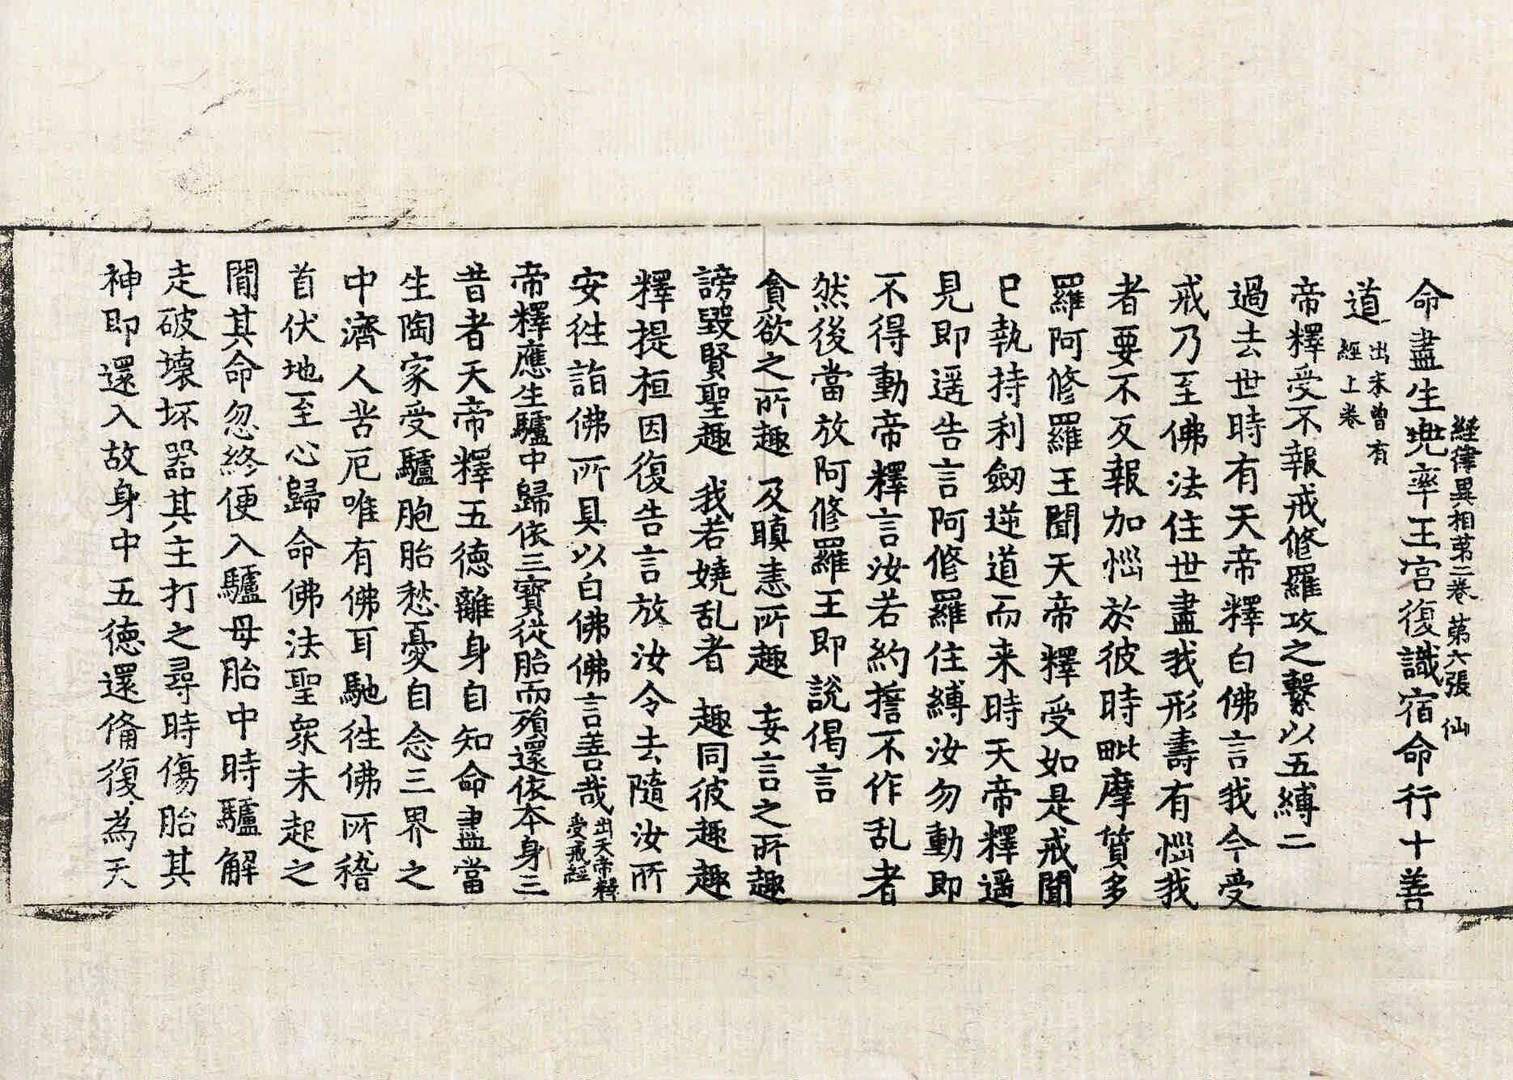 経律異相第二卷 第六張 仙
命盡生兠率王宮復識宿命行十善
道 出未曾有經上卷
帝釋受不報戒修羅攻之繫以五縛二
過去世時有天帝釋白佛言我今受
戒乃至佛法住世盡我形壽有惱我
者要不反報加惱於彼時毗摩質多
羅阿修羅王聞天帝釋受如是戒聞
已執持利劒逆道而来時天帝釋遥
見即遥告言阿修羅住縛汝勿動即
不得動帝釋言汝若約誓不作乱者
然後當放阿修羅王即說偈言
貪欲之所趣 及瞋恚所趣 妄言之所趣
謗毀賢聖趣 我若嬈乱者 趣同彼趣趣
釋提桓因復告言放汝令去隨汝所
安徃詣佛所具以白佛佛言善哉 出天帝釋受戒經
帝釋應生驢中歸依三寶從胎而殞還依本身三
昔者天帝釋五德離身自知命盡當
生陶家受驢胞胎愁憂自念三界之
中濟人苦厄唯有佛耳馳徃佛所稽
首伏地至心歸命佛法聖衆未起之
間其命忽終便入驢母胎中時驢解
走破壞坏器其主打之尋時傷胎其
神即還入故身中五德還俻復為天